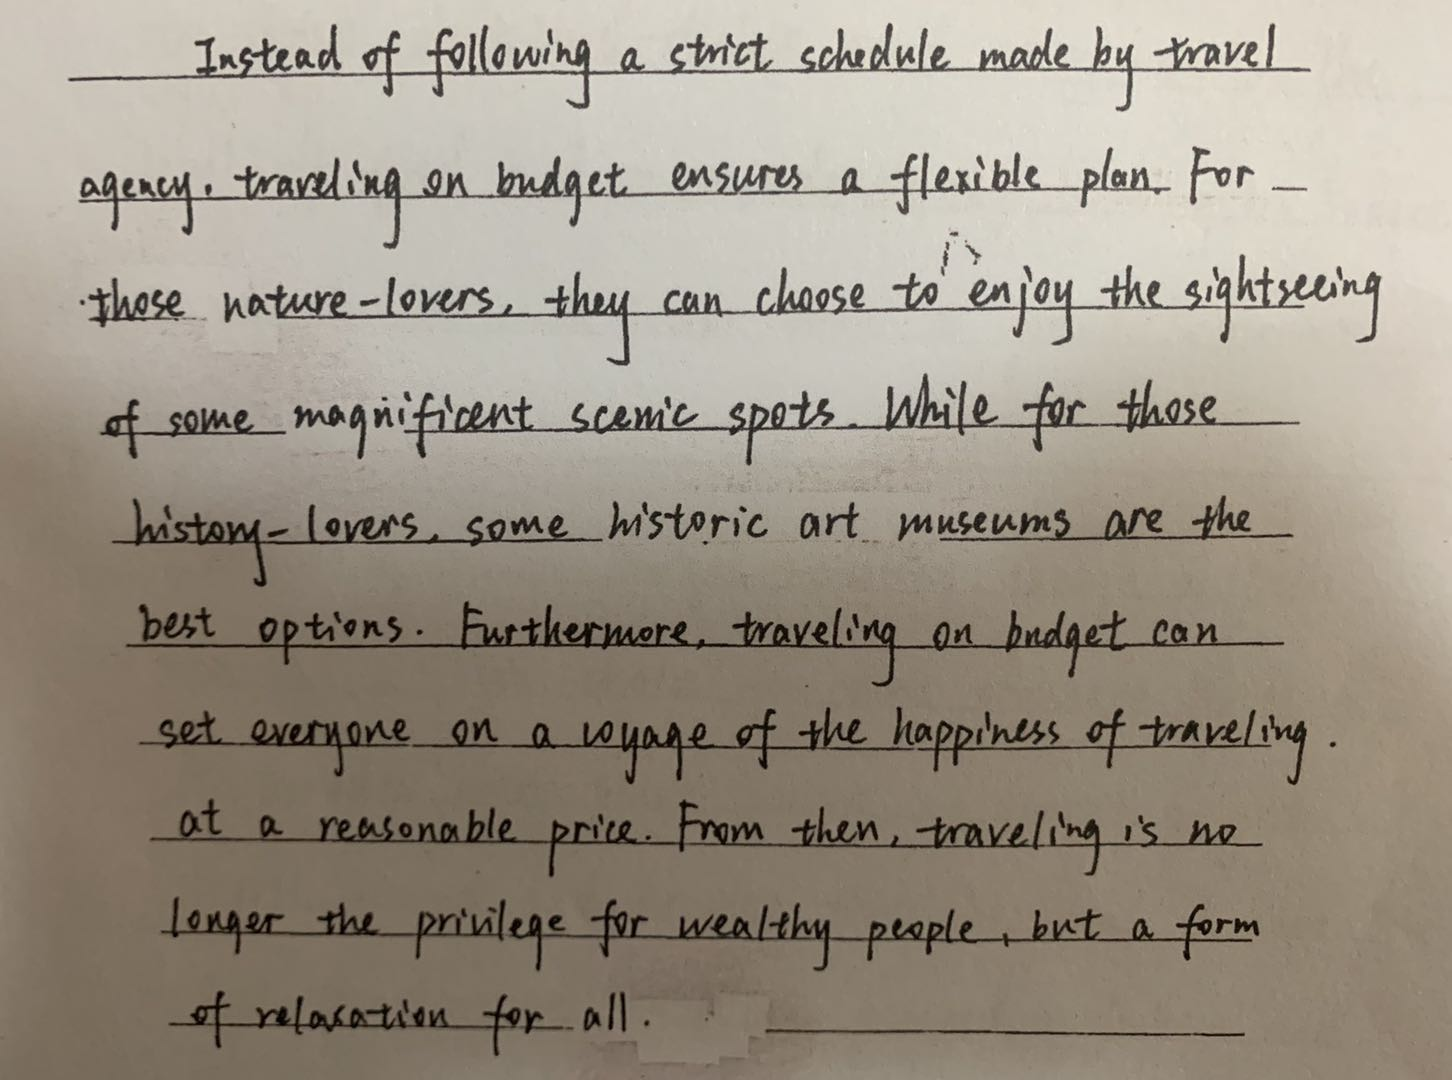 Instead of following a strict schedule made by travel
agency. traveling on budget ensures a flexible plan. For
those nature-lovers, they can choose to enjoy the sightseeing
of some magnificent scenic spots. While for those
history-lovers, some historic art museums are the
best options. Furthermore, traveling on budget can
set everyone on a voyage of the happiness of traveling.
at a reasonable price. From then, traveling is no
longer the privilege for wealthy people, but a form
of relaxation for all.